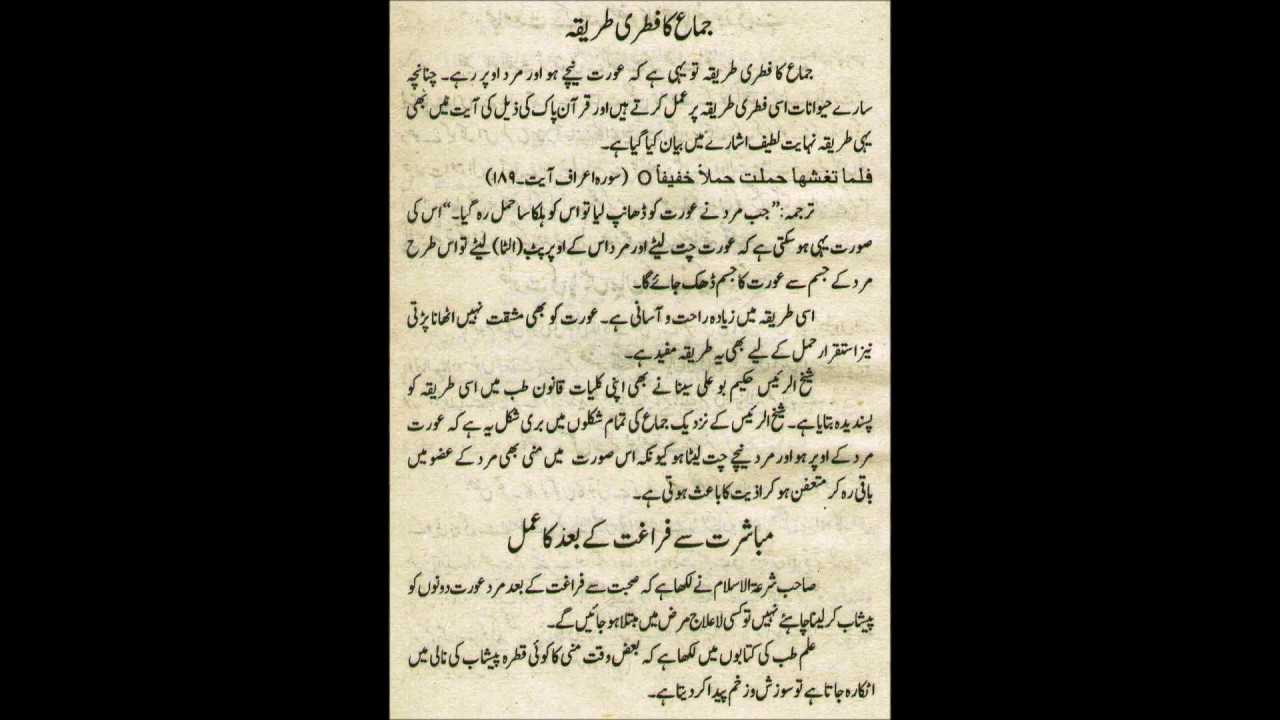 جماع کا فطری طریقہ
جماع کا فطری طریقہ تو یہی ہے کہ عورت نیچے ہو اور مرد اوپر رہے۔ چنانچہ
سارے حیوانات اسی فطری طریقہ پر عمل کرتے ہیں اور قرآن پاک کی ذیل کی آیت میں بھی
یہی طریقہ نہایت لطیف اشارے میں بیان کیا گیا ہے۔
فلما تغشها حملت حملاً خفيفاً O (سورہ اعراف آیت۔۱۸۹)
ترجمہ: ”جب مرد نے عورت کو ڈھانپ لیا تو اس کو ہلکا سا حمل رہ گیا۔“ اس کی
صورت یہی ہو سکتی ہے کہ عورت چت لیٹے اور مرد اس کے اوپر پٹ (الٹا) لیٹے تو اس طرح
مرد کے جسم سے عورت کا جسم ڈھک جائے گا۔
اسی طریقہ میں زیادہ راحت و آسانی ہے۔ عورت کو بھی مشقت نہیں اٹھانا پڑتی
نیز استقرار حمل کے لیے بھی یہ طریقہ مفید ہے۔
شیخ الرئیس حکیم بو علی سینا نے بھی اپنی کلیات قانون طب میں اسی طریقہ کو
پسندیدہ بتایا ہے۔ شیخ الرئیس کے نزدیک جماع کی تمام شکلوں میں بری شکل یہ ہے کہ عورت
مرد کے اوپر ہو اور مرد نیچے چت لیٹا ہو کیونکہ اس صورت میں منی بھی مرد کے عضو میں
باقی رہ کر متعفن ہو کر اذیت کا باعث ہوتی ہے۔
مباشرت سے فراغت کے بعد کا عمل
صاحب شرعۃ الاسلام نے لکھا ہے کہ صحبت سے فراغت کے بعد مرد عورت دونوں کو
پیشاب کر لینا چاہئے نہیں تو کسی لا علاج مرض میں مبتلا ہو جائیں گے۔
علم طب کی کتابوں میں لکھا ہے کہ بعض وقت منی کا کوئی قطرہ پیشاب کی نالی میں
اٹکا رہ جاتا ہے تو سوزش و زخم پیدا کر دیتا ہے۔